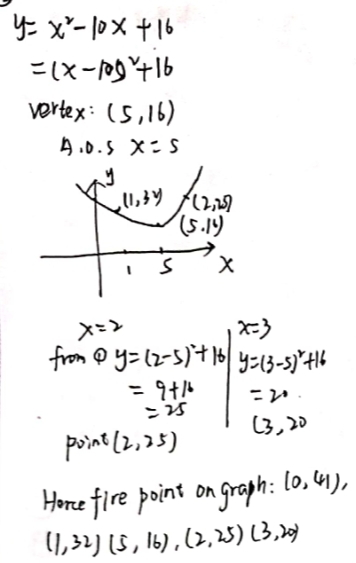 y= x²-10x+16
=(x-10)²+16
vertex: (5,16)
A.O.S x=5
y
(1,32)
(2,25)
(5,16)
1 5 x
x=2
x=3
from ① y=(2-5)²+16
y=(3-5)²+16
= 9+16
= 20
= 25
(3,20
point (2,25)
Hence five point on graph: (0,41),
(1,32) (5,16), (2,25) (3,20)